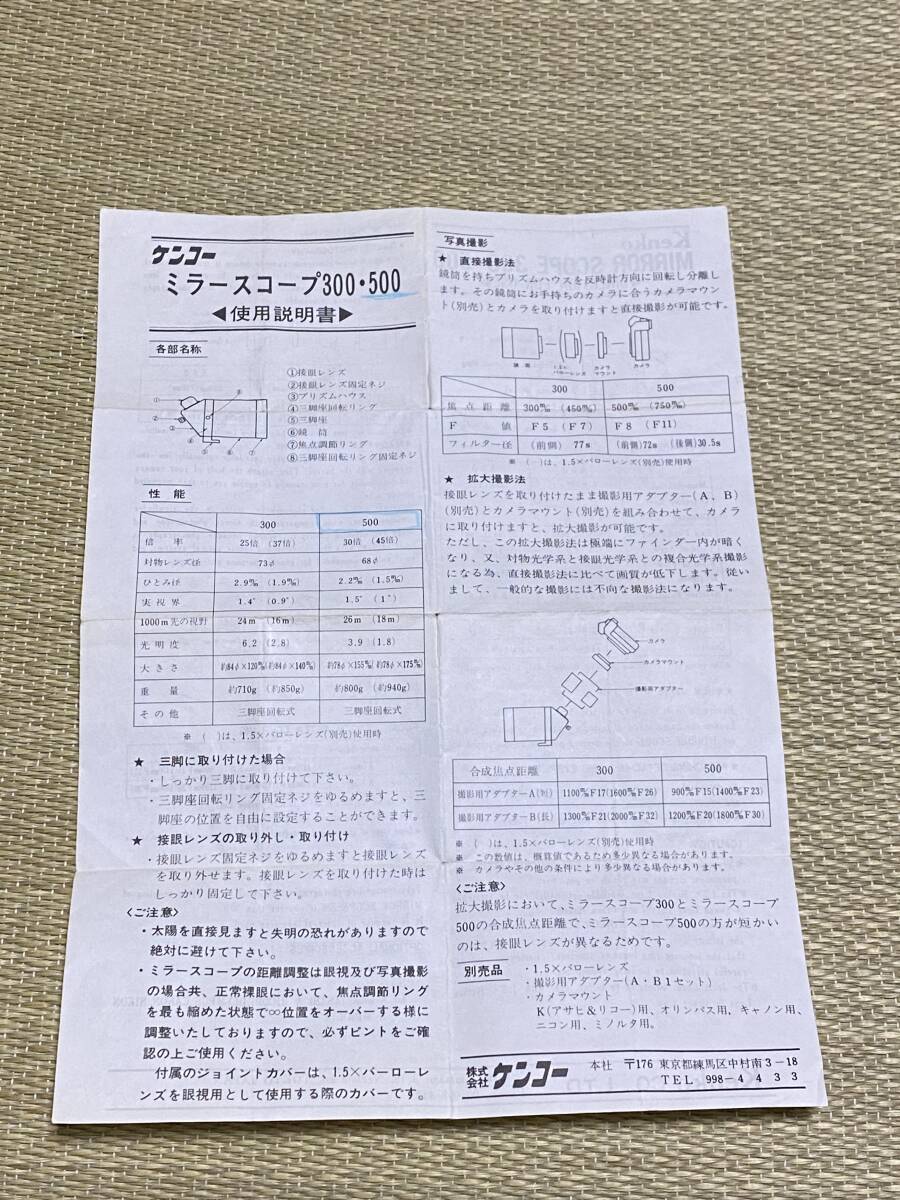 ケンコー
ミラースコープ300・500
◀使用説明書▶
各部名称
①接眼レンズ
②接眼レンズ固定ネジ
③プリズムハウス
④三脚座回転リング
⑤三脚座
⑥鏡筒
⑦焦点調節リング
⑧三脚座回転リング固定ネジ
性能
300 500
倍率 25倍(37倍) 30倍(45倍)
対物レンズ径 73φ 68φ
ひとみ径 2.9㎜(1.9㎜) 2.2㎜(1.5㎜)
実視界 1.4°(0.9°) 1.5°(1°)
1000m先の視野 24m(16m) 26m(18m)
光明度 6.2(2.8) 3.9(1.8)
大きさ 約84φ×120㎜(約84φ×140㎜) 約78φ×155㎜(約78φ×175㎜)
重量 約710g(約850g) 約800g(約940g)
その他 三脚座回転式 三脚座回転式
※( )は、1.5×バローレンズ(別売)使用時
★ 三脚に取り付けた場合
・しっかり三脚に取り付けて下さい。
・三脚座回転リング固定ネジをゆるめますと、三
脚座の位置を自由に設定することができます。
★ 接眼レンズの取り外し・取り付け
・接眼レンズ固定ネジをゆるめますと接眼レンズ
を取り外せます。接眼レンズを取り付けた時は
しっかり固定して下さい。
〈ご注意〉
・太陽を直接見ますと失明の恐れがありますので
絶対に避けて下さい。
・ミラースコープの距離調整は眼視及び写真撮影
の場合共、正常裸眼において、焦点調節リング
を最も縮めた状態で∞位置をオーバーする様に
調整いたしておりますので、必ずピントをご確
認の上ご使用ください。
付属のジョイントカバーは、1.5×バーローレ
ンズを眼視用として使用する際のカバーです。
写真撮影
★ 直接撮影法
鏡筒を持ちプリズムハウスを反時計方向に回転し分離し
ます。その鏡筒にお手持ちのカメラに合うカメラマウン
ト(別売)とカメラを取り付けますと直接撮影が可能です。
鏡筒 1.5× バローレンズ カメラマウント カメラ
300 500
焦点距離 300㎜(450㎜) 500㎜(750㎜)
F値 F5(F7) F8(F11)
フィルター径 (前側)77s (前側)72s(後側)30.5s
※( )は、1.5×バローレンズ(別売)使用時
★ 拡大撮影法
接眼レンズを取り付けたまま撮影用アダプター(A、B)
(別売)とカメラマウント(別売)を組み合わせて、カメラ
に取り付けますと、拡大撮影が可能です。
ただし、この拡大撮影法は極端にファインダー内が暗く
なり、又、対物光学系と接眼光学系との複合光学系撮影
になる為、直接撮影法に比べて画質が低下します。従い
まして、一般的な撮影には不向な撮影法になります。
カメラ
カメラマウント
撮影用アダプター
合成焦点距離 300 500
撮影用アダプターA(短) 1100㎜F17(1600㎜F26) 900㎜F15(1400㎜F23)
撮影用アダプターB(長) 1300㎜F21(2000㎜F32) 1200㎜F20(1800㎜F30)
※( )は、1.5×バローレンズ(別売)使用時
※ この数値は、概算値であるため多少異なる場合があります。
※ カメラやその他の条件により多少異なる場合があります。
〈ご注意〉
拡大撮影において、ミラースコープ300とミラースコープ
500の合成焦点距離で、ミラースコープ500の方が短かい
のは、接眼レンズが異なるためです。
別売品
・1.5×バローレンズ
・撮影用アダプター(A・B1セット)
・カメラマウント
K(アサヒ&リコー)用、オリンパス用、キャノン用、
ニコン用、ミノルタ用。
株式会社ケンコー 本社 〒176 東京都練馬区中村南3-18
TEL 998-4433